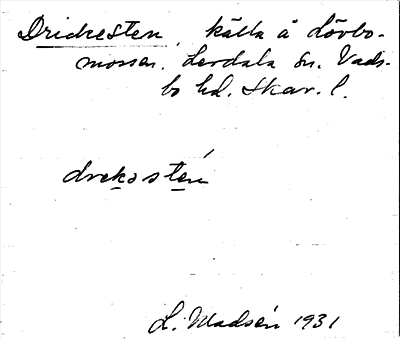 Drickesten, källa å Lövbo-
mossen. Lerdala sn. Vads-
bo hd. Skar. l.
drekostén
L. Madsén 1931